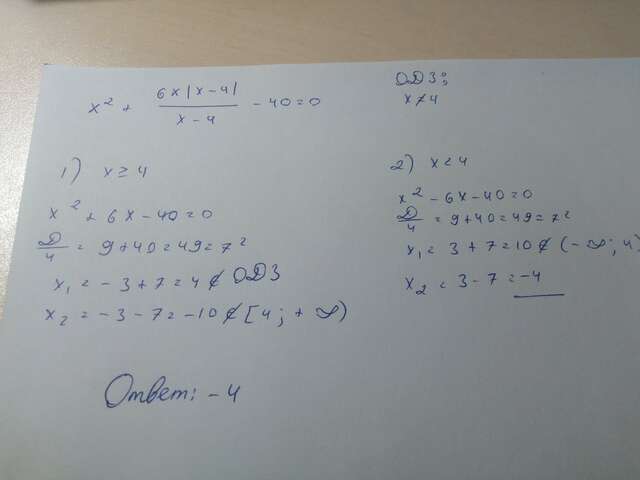 x² + 6x|x-4| / x-4 - 40 = 0
ОДЗ:
x ≠ 4
1) x ≥ 4
x² + 6x - 40 = 0
D/4 = 9 + 40 = 49 = 7²
x₁ = -3 + 7 = 4 ∉ ОДЗ
x₂ = -3 - 7 = -10 ∉ [4; +∞)
2) x < 4
x² - 6x - 40 = 0
D/4 = 9 + 40 = 49 = 7²
x₁ = 3 + 7 = 10 ∉ (-∞; 4)
x₂ = 3 - 7 = -4
Ответ: -4